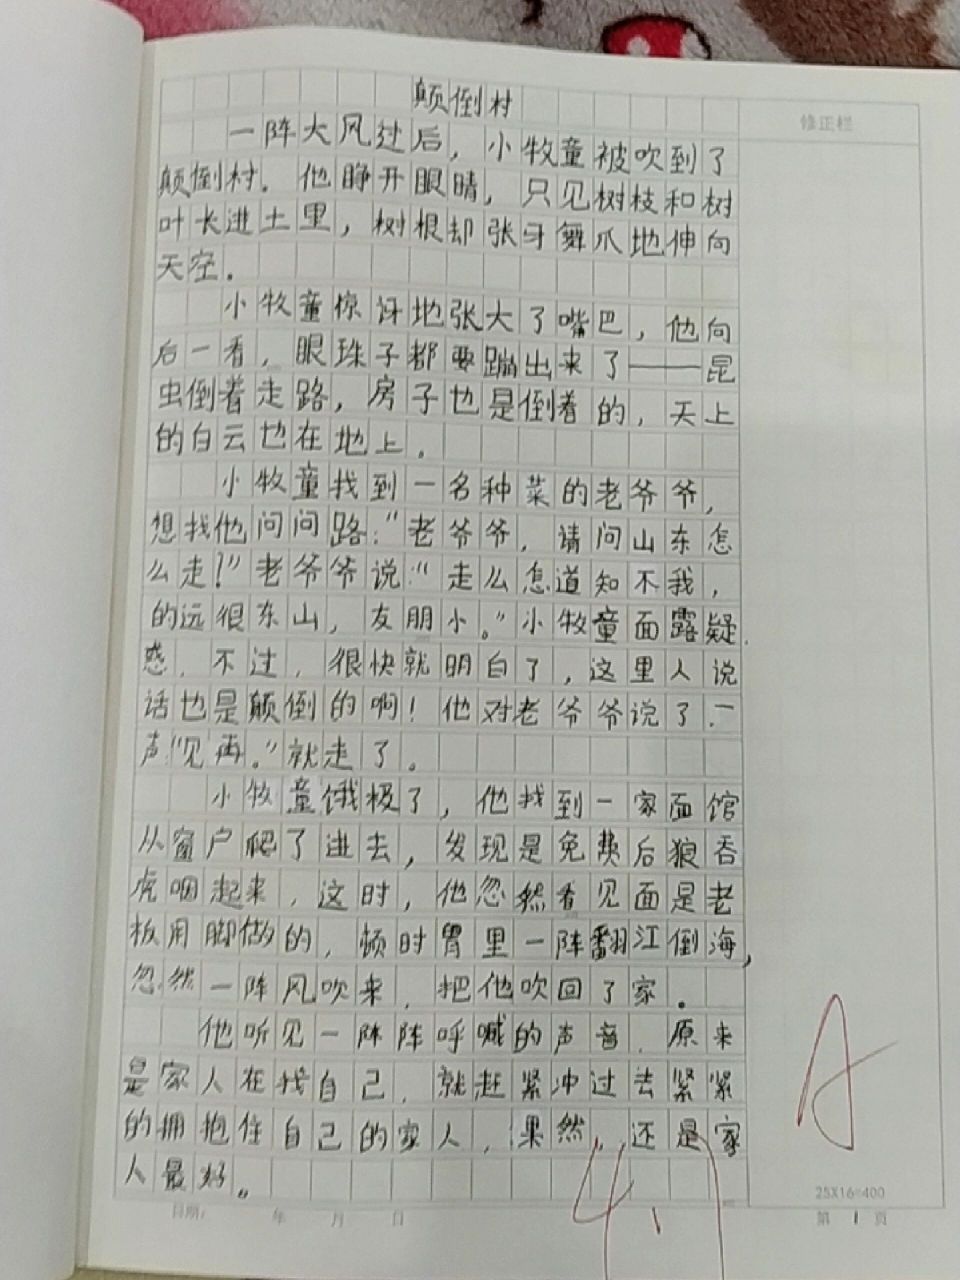 颠倒村
修正栏
一阵大风过后，小牧童被吹到了
颠倒村。他睁开眼睛，只见树枝和树
叶长进土里，树根却张牙舞爪地伸向
天空。
小牧童惊讶地张大了嘴巴，他向
后一看，眼珠子都要蹦出来了——昆
虫倒着走路，房子也是倒着的，天上
的白云也在地上。
小牧童找到一名种菜的老爷爷，
想找他问问路："老爷爷，请问山东怎
么走？"老爷爷说："走么怎道知不我，
的远很东山，友朋小。"小牧童面露疑
惑，不过，很快就明白了，这里人说
话也是颠倒的啊！他对老爷爷说了一
声"见再。"就走了。
小牧童饿极了，他找到一家面馆
从窗户爬了进去，发现是免费后狼吞
虎咽起来，这时，他忽然看见面是老
板用脚做的，顿时胃里一阵翻江倒海，
忽然一阵风吹来，把他吹回了家。
他听见一阵阵呼喊的声音，原来
是家人在找自己，就赶紧冲过去紧紧
的拥抱住自己的家人，果然，还是家
人最好。
A
4.9
25X16=400
日期： 年 月 日
第 1 页